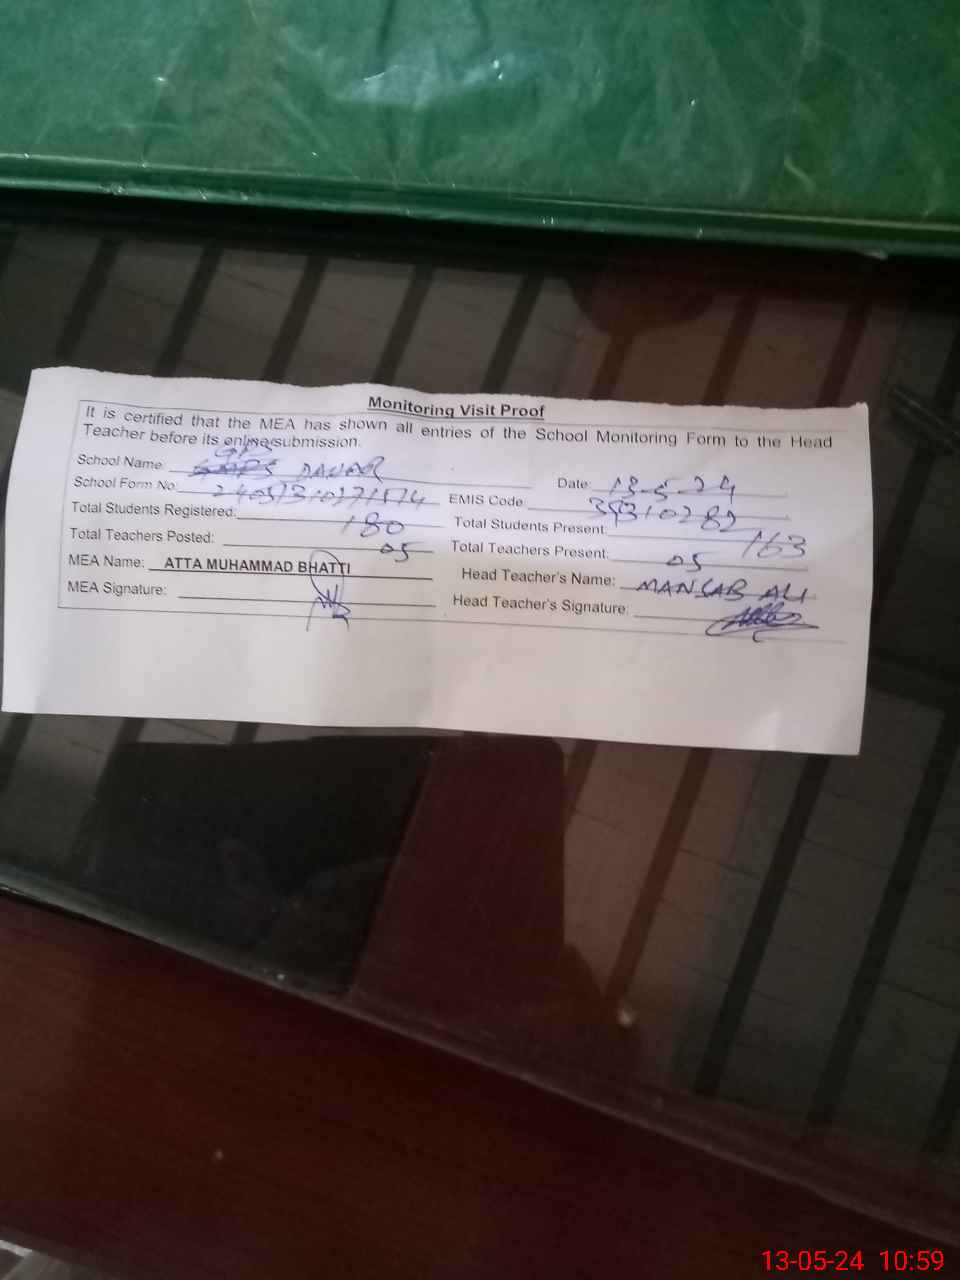 Monitoring Visit Proof
It is certified that the MEA has shown all entries of the School Monitoring Form to the Head
Teacher before its online submission.
School Name: GPS DANAR Date: 13-5-24
School Form No: EMIS Code
Total Students Registered: 180 Total Students Present: 163
Total Teachers Posted: 05 Total Teachers Present: 05
MEA Name: ATTA MUHAMMAD BHATTI Head Teacher's Name: MANSAB ALI
MEA Signature: Head Teacher's Signature:
13-05-24 10:59